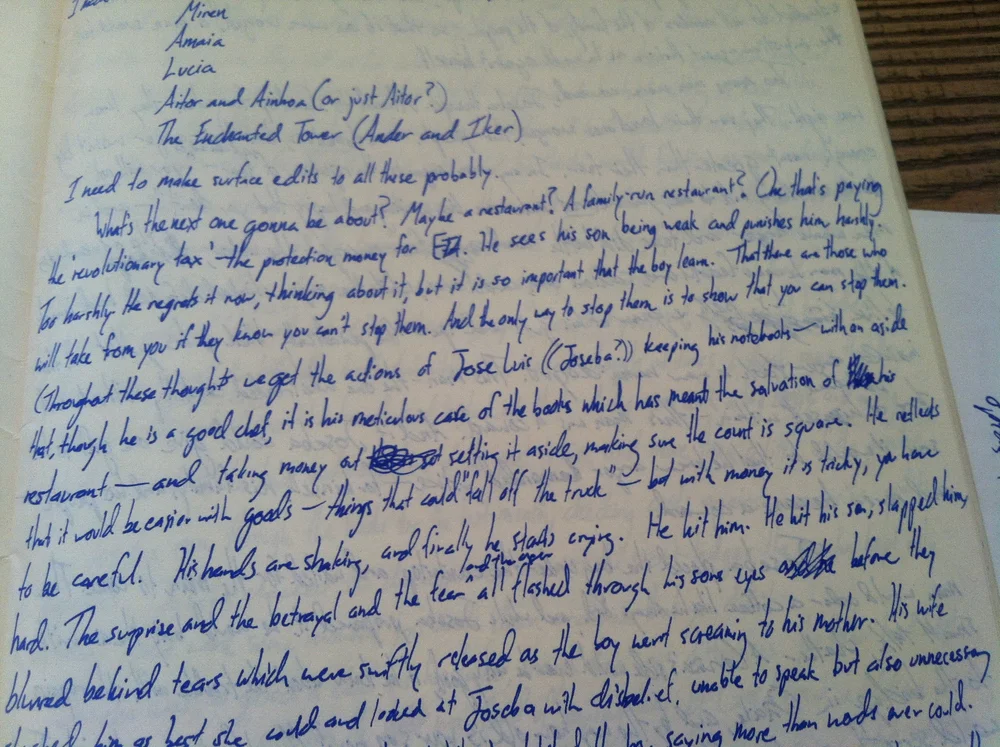 Miren
Amaia
Lucia
Aitor and Ainhoa (or just Aitor?)
The Enchanted Tower (Ander and Iker)
I need to make surface edits to all these probably.
What's the next one gonna be about? Maybe a restaurant? A family-run restaurant? One that's paying
the 'revolutionary tax' - the protection money for ETA. He sees his son being weak and punishes him harshly.
Too harshly. He regrets it now, thinking about it, but it is so important that the boy learn. That there are those who
will take from you if they know you can't stop them. And the only way to stop them is to show that you can stop them.
(Throughout these thoughts we get the actions of Jose Luis ((Joseba?)) keeping his notebooks — with an aside
that, though he is a good chef, it is his meticulous care of the books which has meant the salvation of his
restaurant — and taking money out setting it aside, making sure the count is square. He reflects
that it would be easier with goods — things that could "fall off the truck" — but with money it is tricky, you have
to be careful. His hands are shaking, and finally he starts crying. He hit him. He hit his son, slapped him,
hard. The surprise and the betrayal and the fear and the anger all flashed through his sons eyes before they
blurred behind tears which were swiftly released as the boy went screaming to his mother. His wife
him as best she could and looked at Joseba with disbelief, unable to speak but also unnecessary
saying more than words ever could.